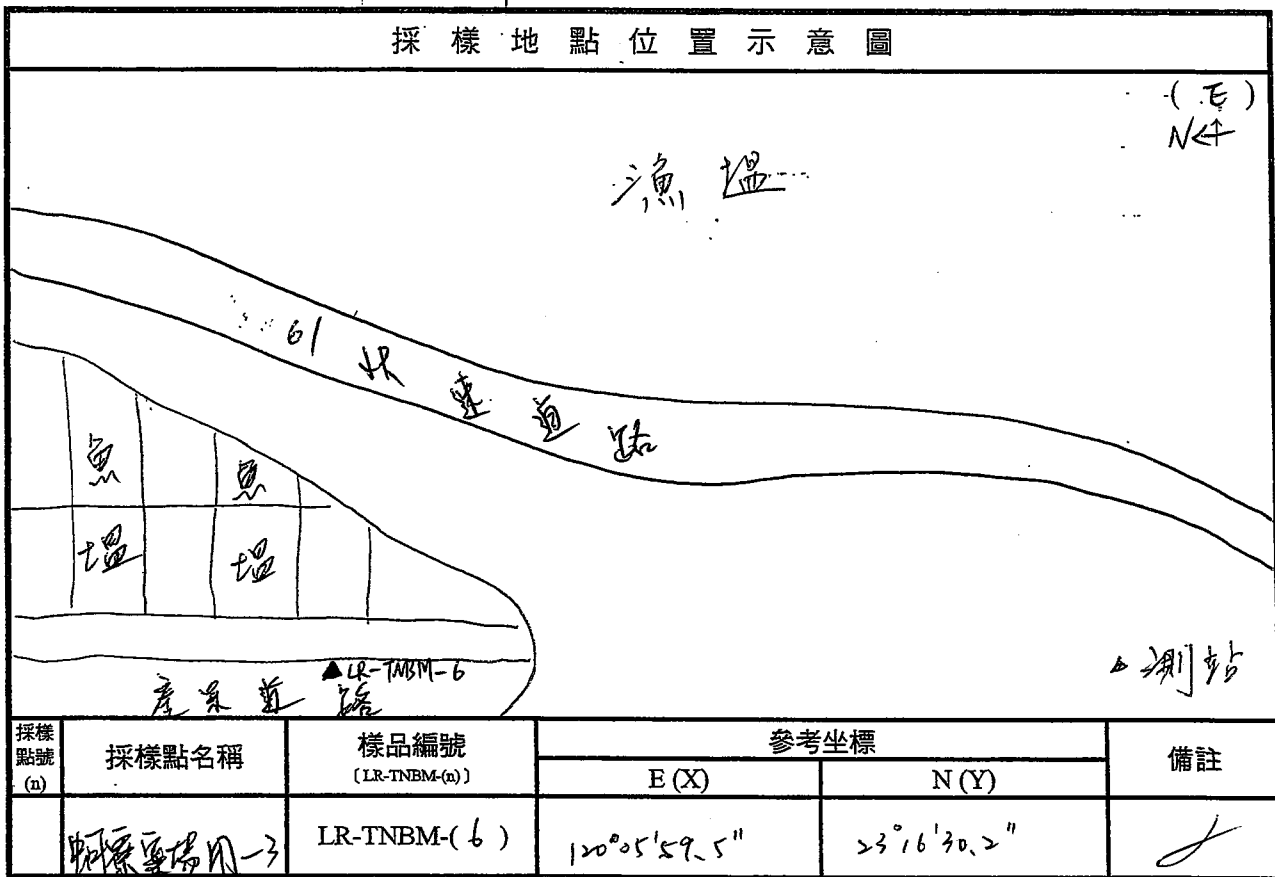 採樣地點位置示意圖
(E)
N
漁塭
61快速道路
魚塭
魚塭
▲LR-TNBM-6
產業道路
△測站
採樣點號(n)
採樣點名稱
樣品編號
[LR-TNBM-(n)]
參考坐標
E (X)
N (Y)
備註
LR-TNBM-( 6 )
120°05'59.5"
23°16'30.2"